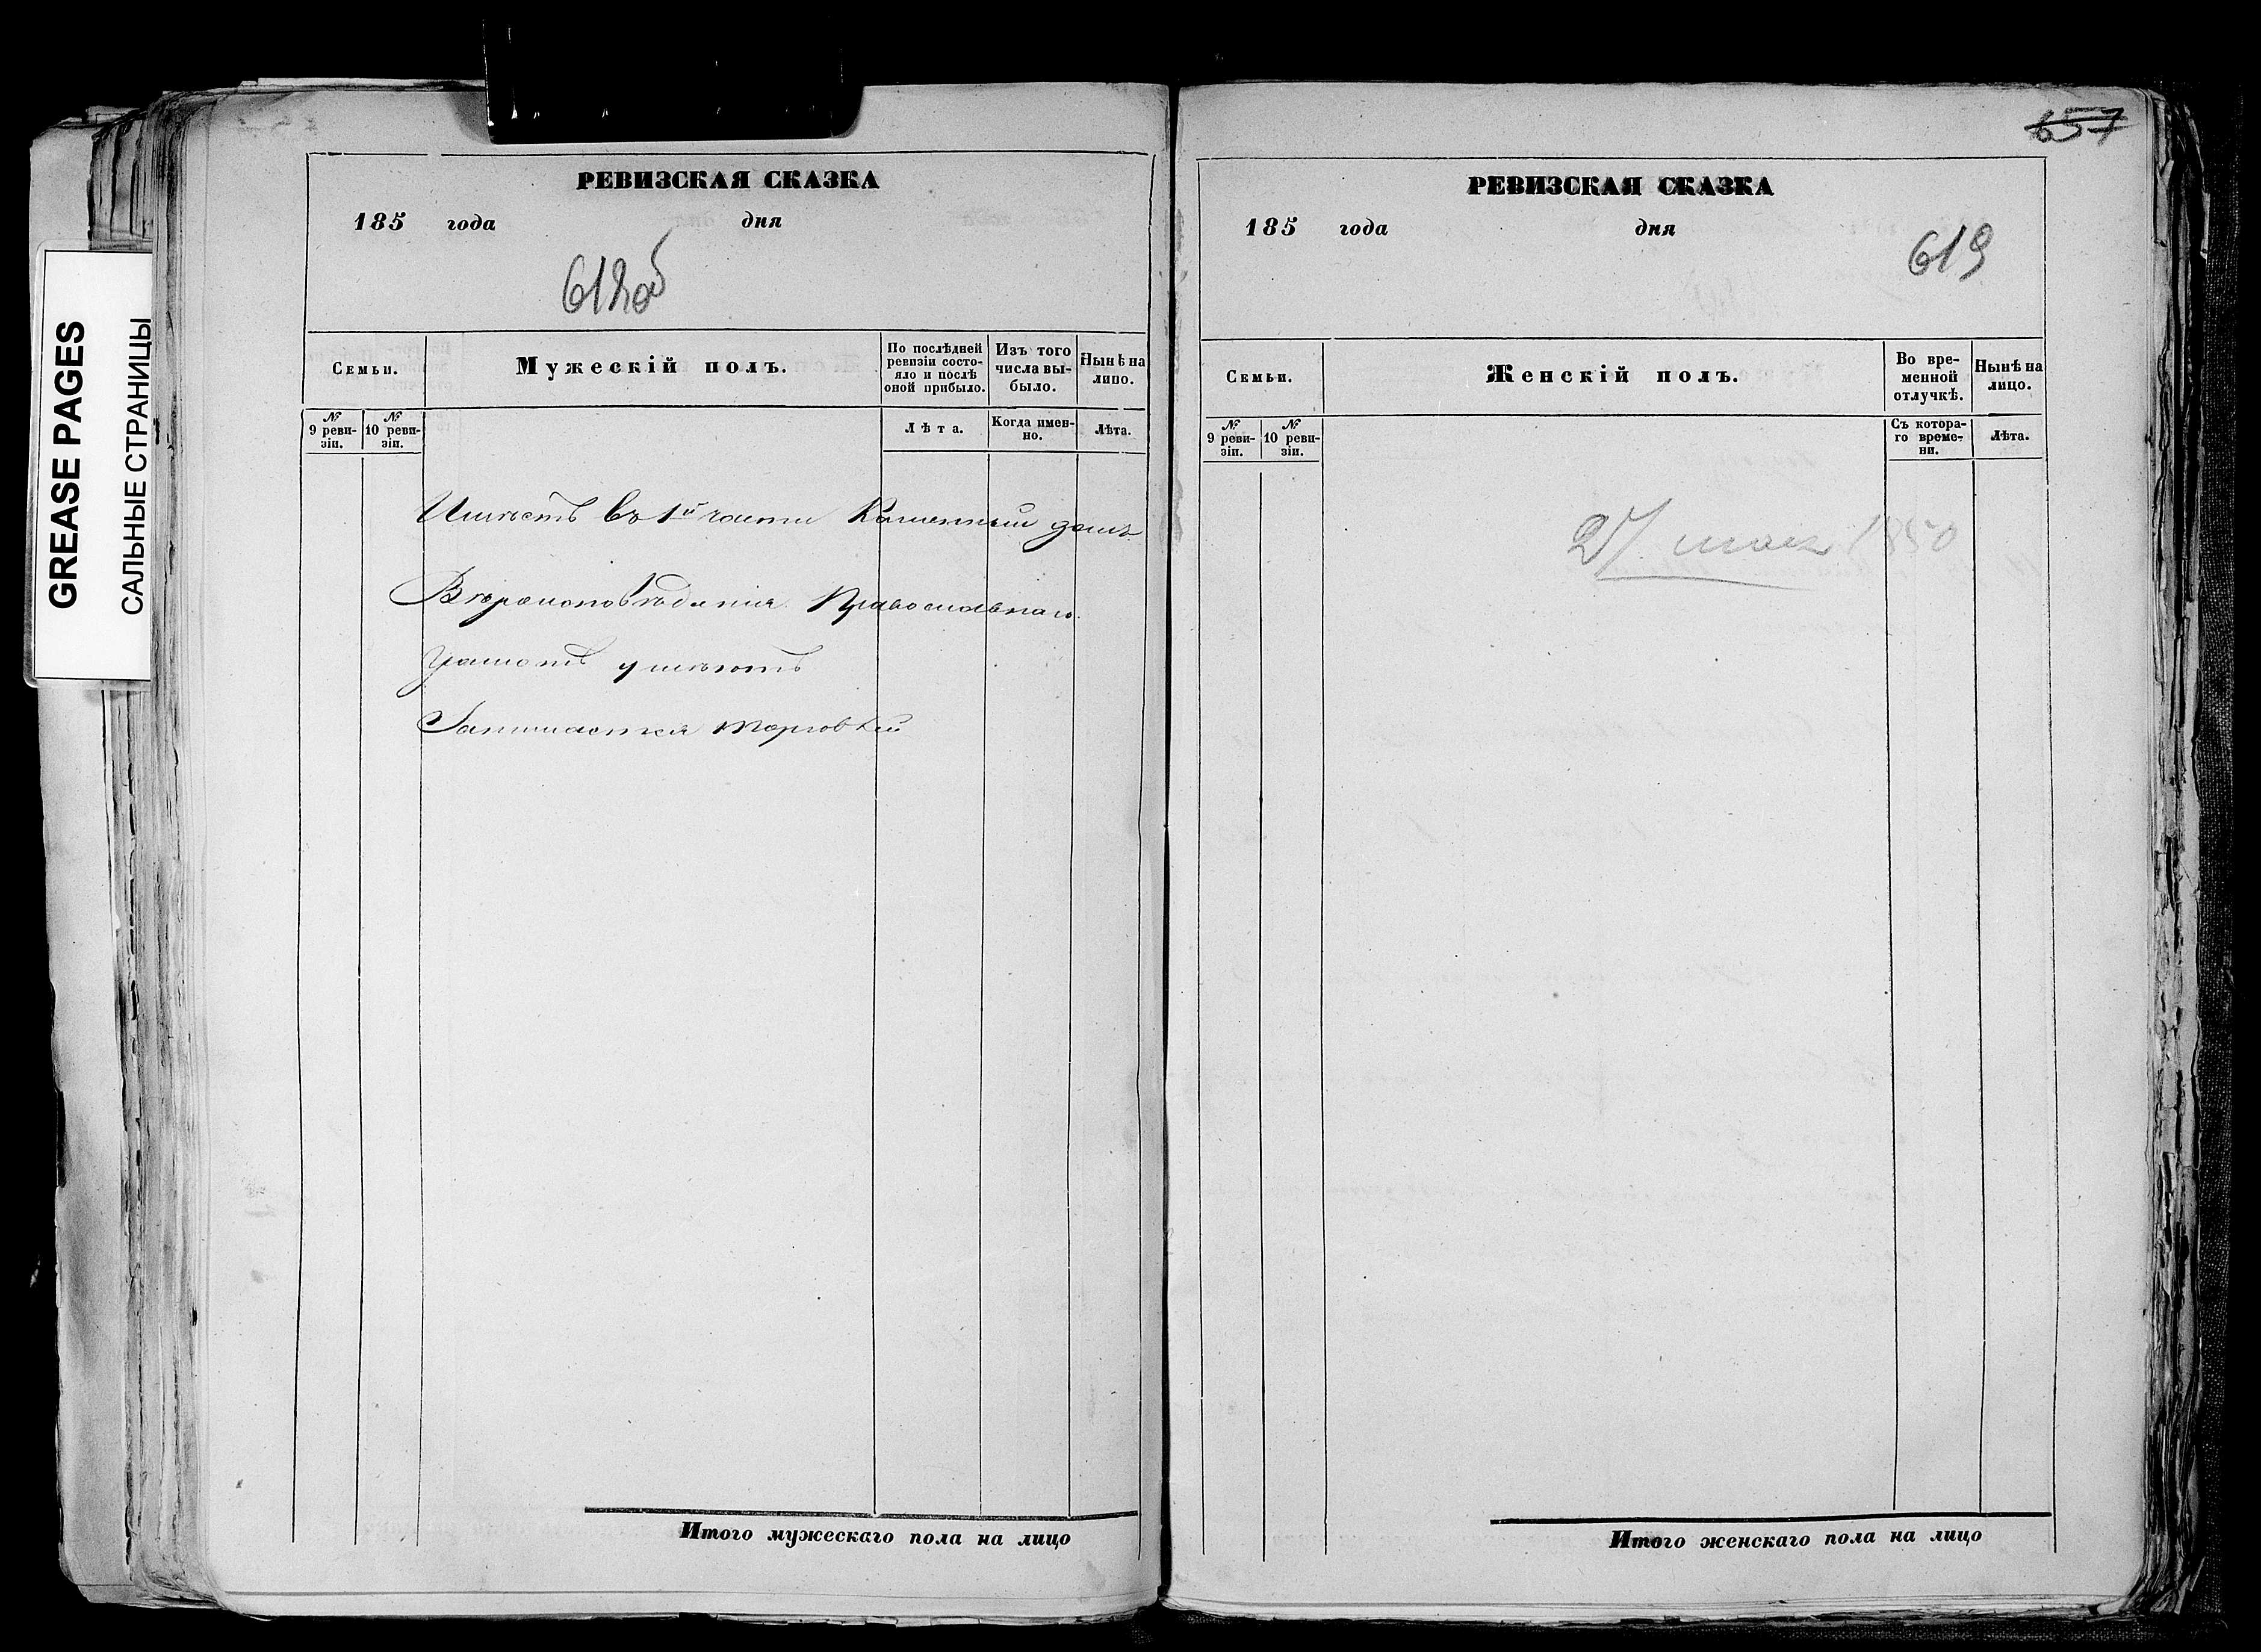 GREASE PAGES
САЛЬНЫЕ СТРАНИЦЫ
РЕВИЗСКАЯ СКАЗКА
185 года дня
618об
Семьи.
Мужескій полъ.
По послѣдней ревизіи состояло и послѣ оной прибыло.
Изъ того числа выбыло.
Нынѣ на лицо.
№ 9 ревизіи.
№ 10 ревизіи.
Лѣта.
Когда именно.
Лѣта.
Имѣетъ въ 1й части Каменный домъ
Вѣроисповѣданія Православнаго
Грамотѣ умѣютъ
Занимается торговлей
Итого мужескаго пола на лицо
657
РЕВИЗСКАЯ СКАЗКА
185 года дня
619
Семьи.
Женскій полъ.
Во временной отлучкѣ.
Нынѣ на лицо.
№ 9 ревизіи.
№ 10 ревизіи.
Съ котораго времени.
Лѣта.
27 мая 1850
Итого женскаго пола на лицо